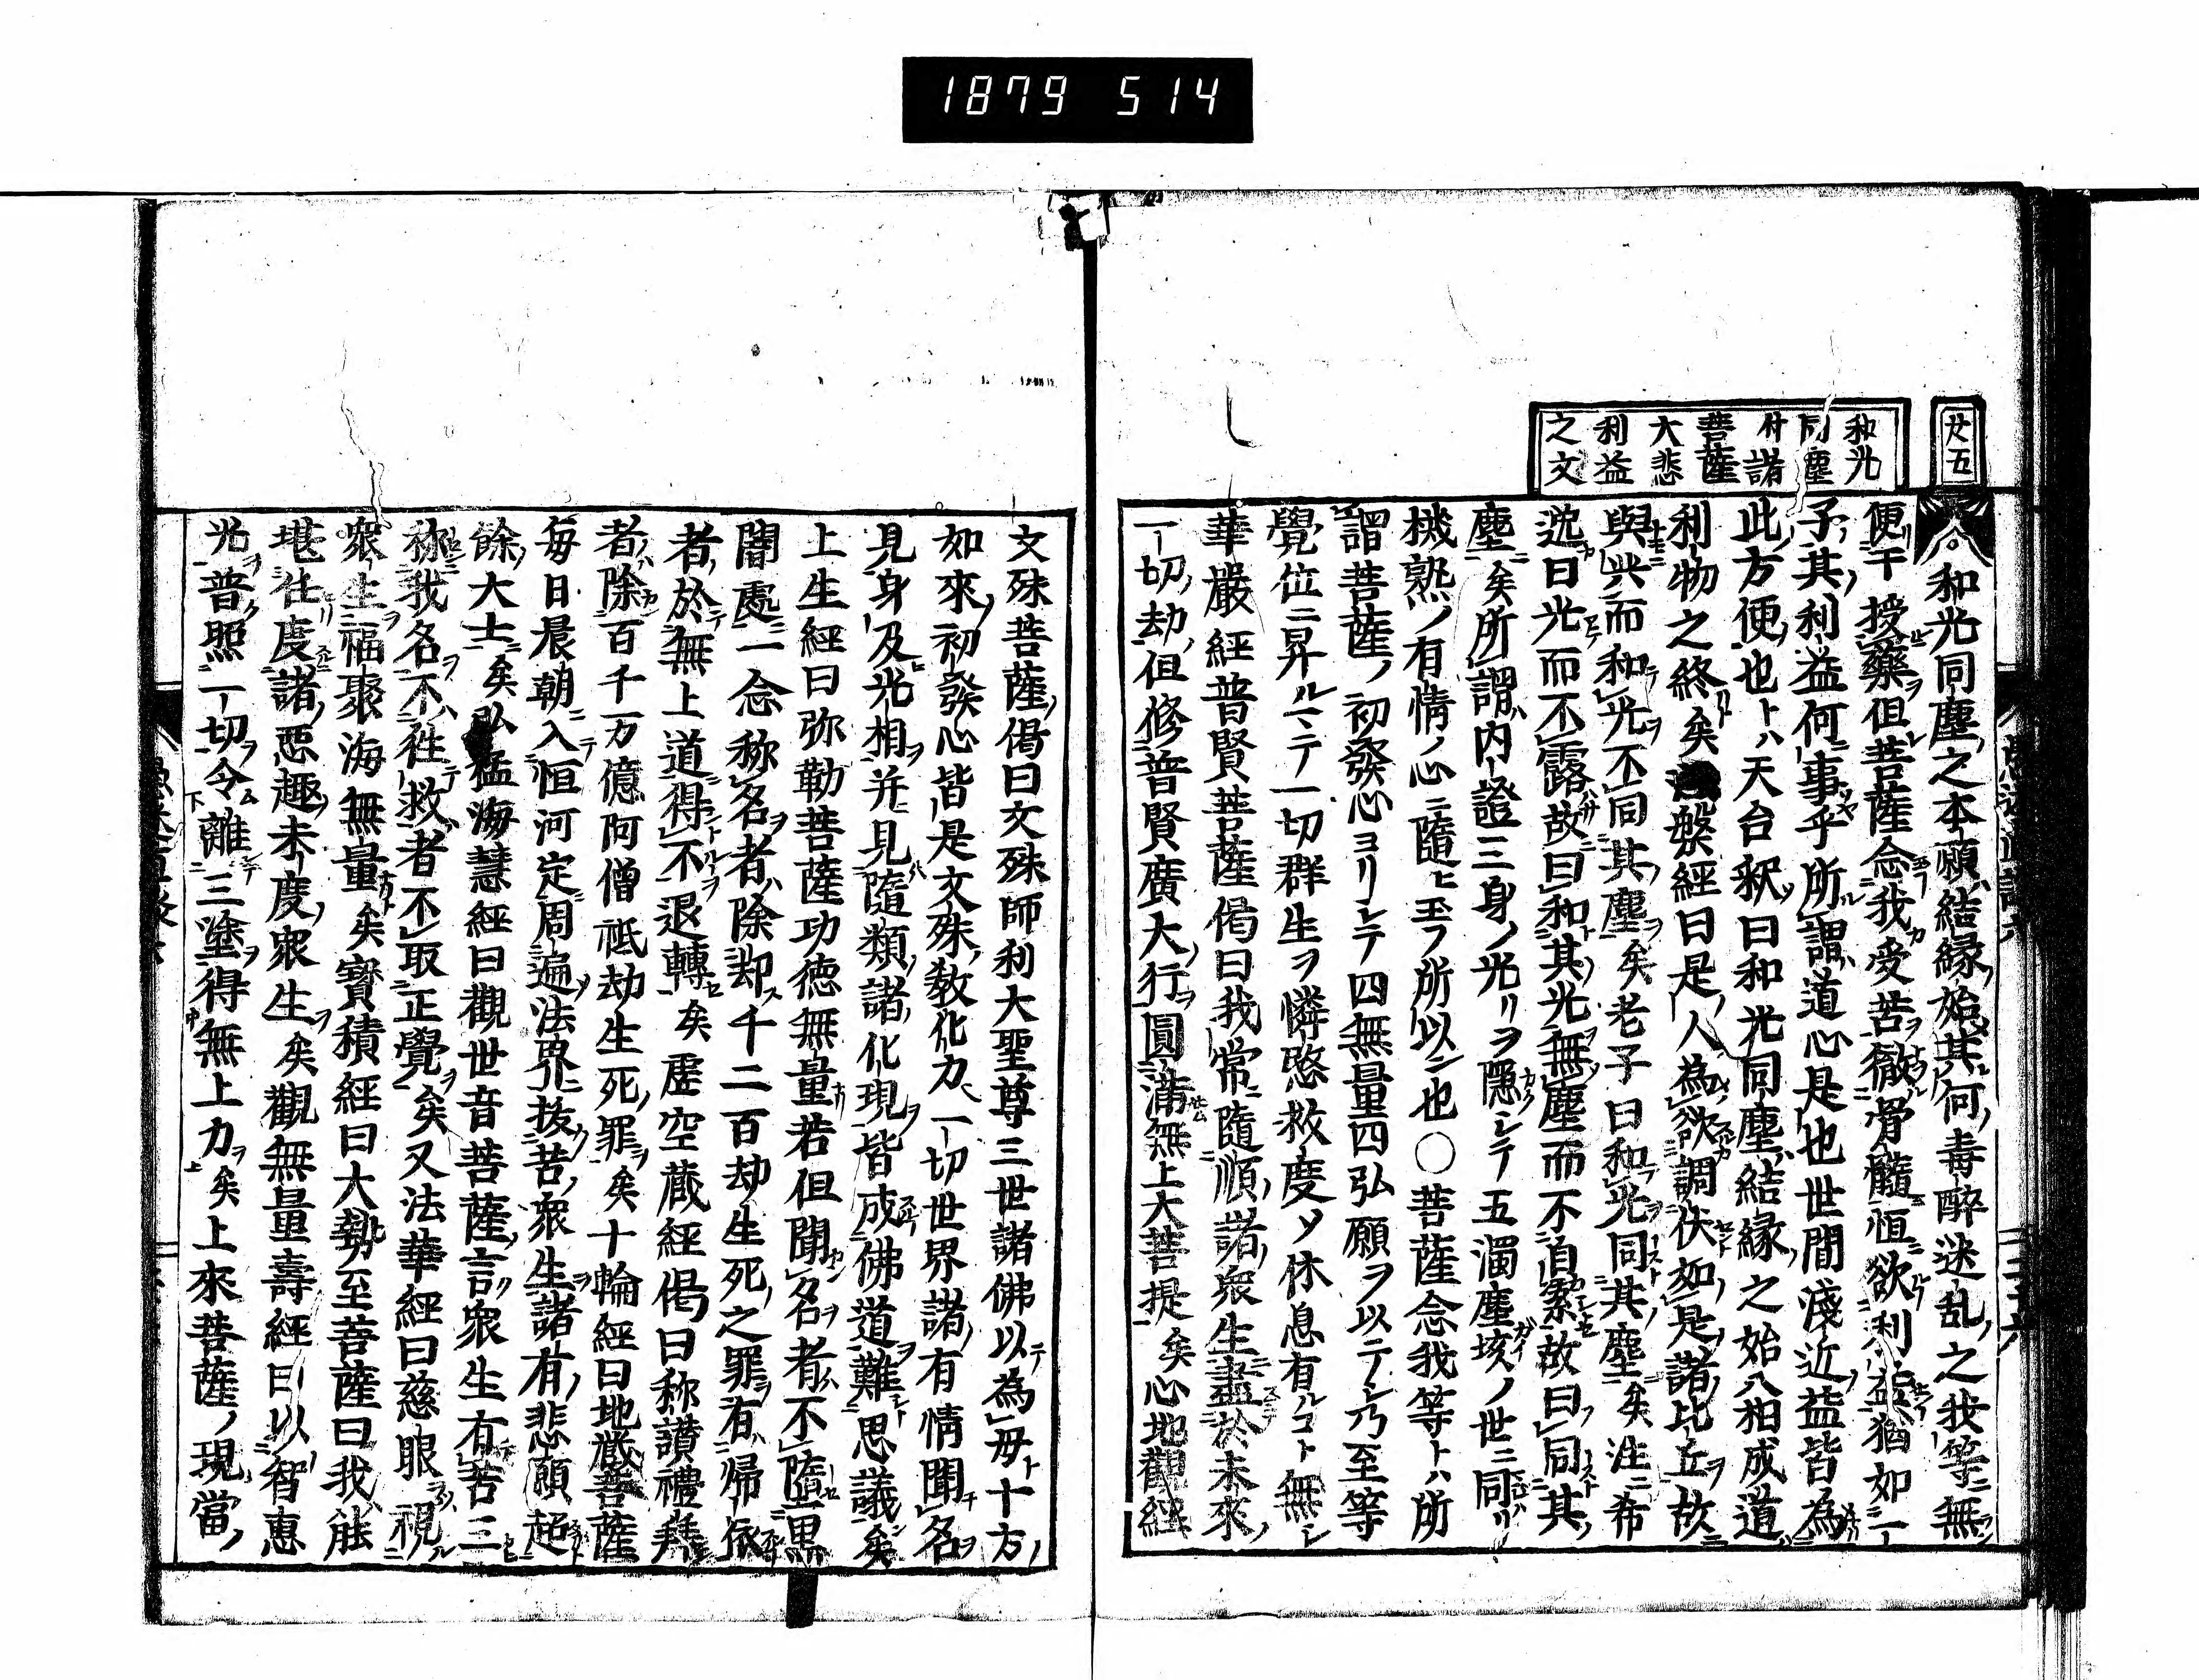 1879 514
廿五
和光
同塵
付諸
菩薩
大悲
利益
之文
和光同塵之本願結縁始其何毒醉迷乱之我等無
便干授藥但菩薩念我受苦徹骨髓恒欲利益猶如一
子其利益何事乎所謂道心是也世間淺近益皆為
此方便也トハ天台釈曰和光同塵結縁之始八相成道
利物之終矣 槃經曰是人為欲調伏如是諸比丘故
與共而和光不同其塵矣老子曰和光同其塵矣注ニ希
逸曰光而不露故曰和其光無塵而不自累故曰同其
塵矣所謂内證三身ノ光リヲ隠シテ五濁塵垓ノ世ニ同
機熟ノ有情ノ心ニ隨ヒ玉フ所以ン也○菩薩念我等トハ所
謂菩薩ノ初發心ヨリシテ四無量四弘願ヲ以テシ乃至等
覺位ニ昇ルマテ一切群生ヲ憐愍救度ソ休息有ルコト無シ
華嚴經普賢菩薩偈曰我常隨順諸衆生盡於未來
一切劫但修普賢廣大行圓滿無上大菩提矣心地觀經
文殊菩薩偈曰文殊師利大聖尊三世諸佛以為母十方
如來初發心皆是文殊敎化力一切世界諸有情聞名
見身及光相并見隨類諸化現皆成佛道難思議矣
上生經曰弥勒菩薩功徳無量若但聞名者不墮黒
闇處一念称名者除却千二百劫生死之罪有帰依
者於無上道得不退轉矣虚空藏經偈曰称讃禮拜
者除百千万億阿僧祇劫生死罪矣十輪經曰地藏菩薩
毎日晨朝入恒河定周遍法界抜苦衆生諸有悲願超
餘大士矣弘猛海慧經曰觀世音菩薩言衆生有苦三
称我名不往救者不取正覺矣又法華經曰慈眼視
衆生福聚海無量矣寳積經曰大勢至菩薩曰我能
堪任度諸惡趣未度衆生矣觀無量壽經曰以智恵
光普照一切令離三塗得無上力矣上來菩薩ノ現當